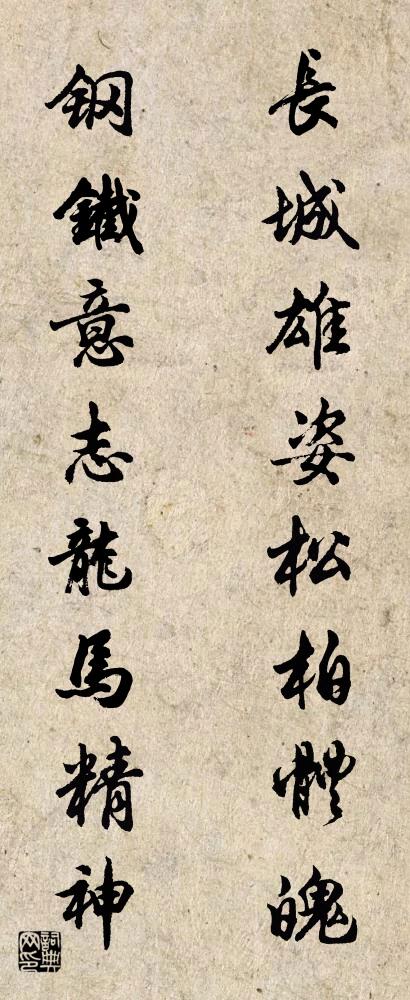 長城雄姿松柏體魄
鋼鐵意志龍馬精神
詞典網印